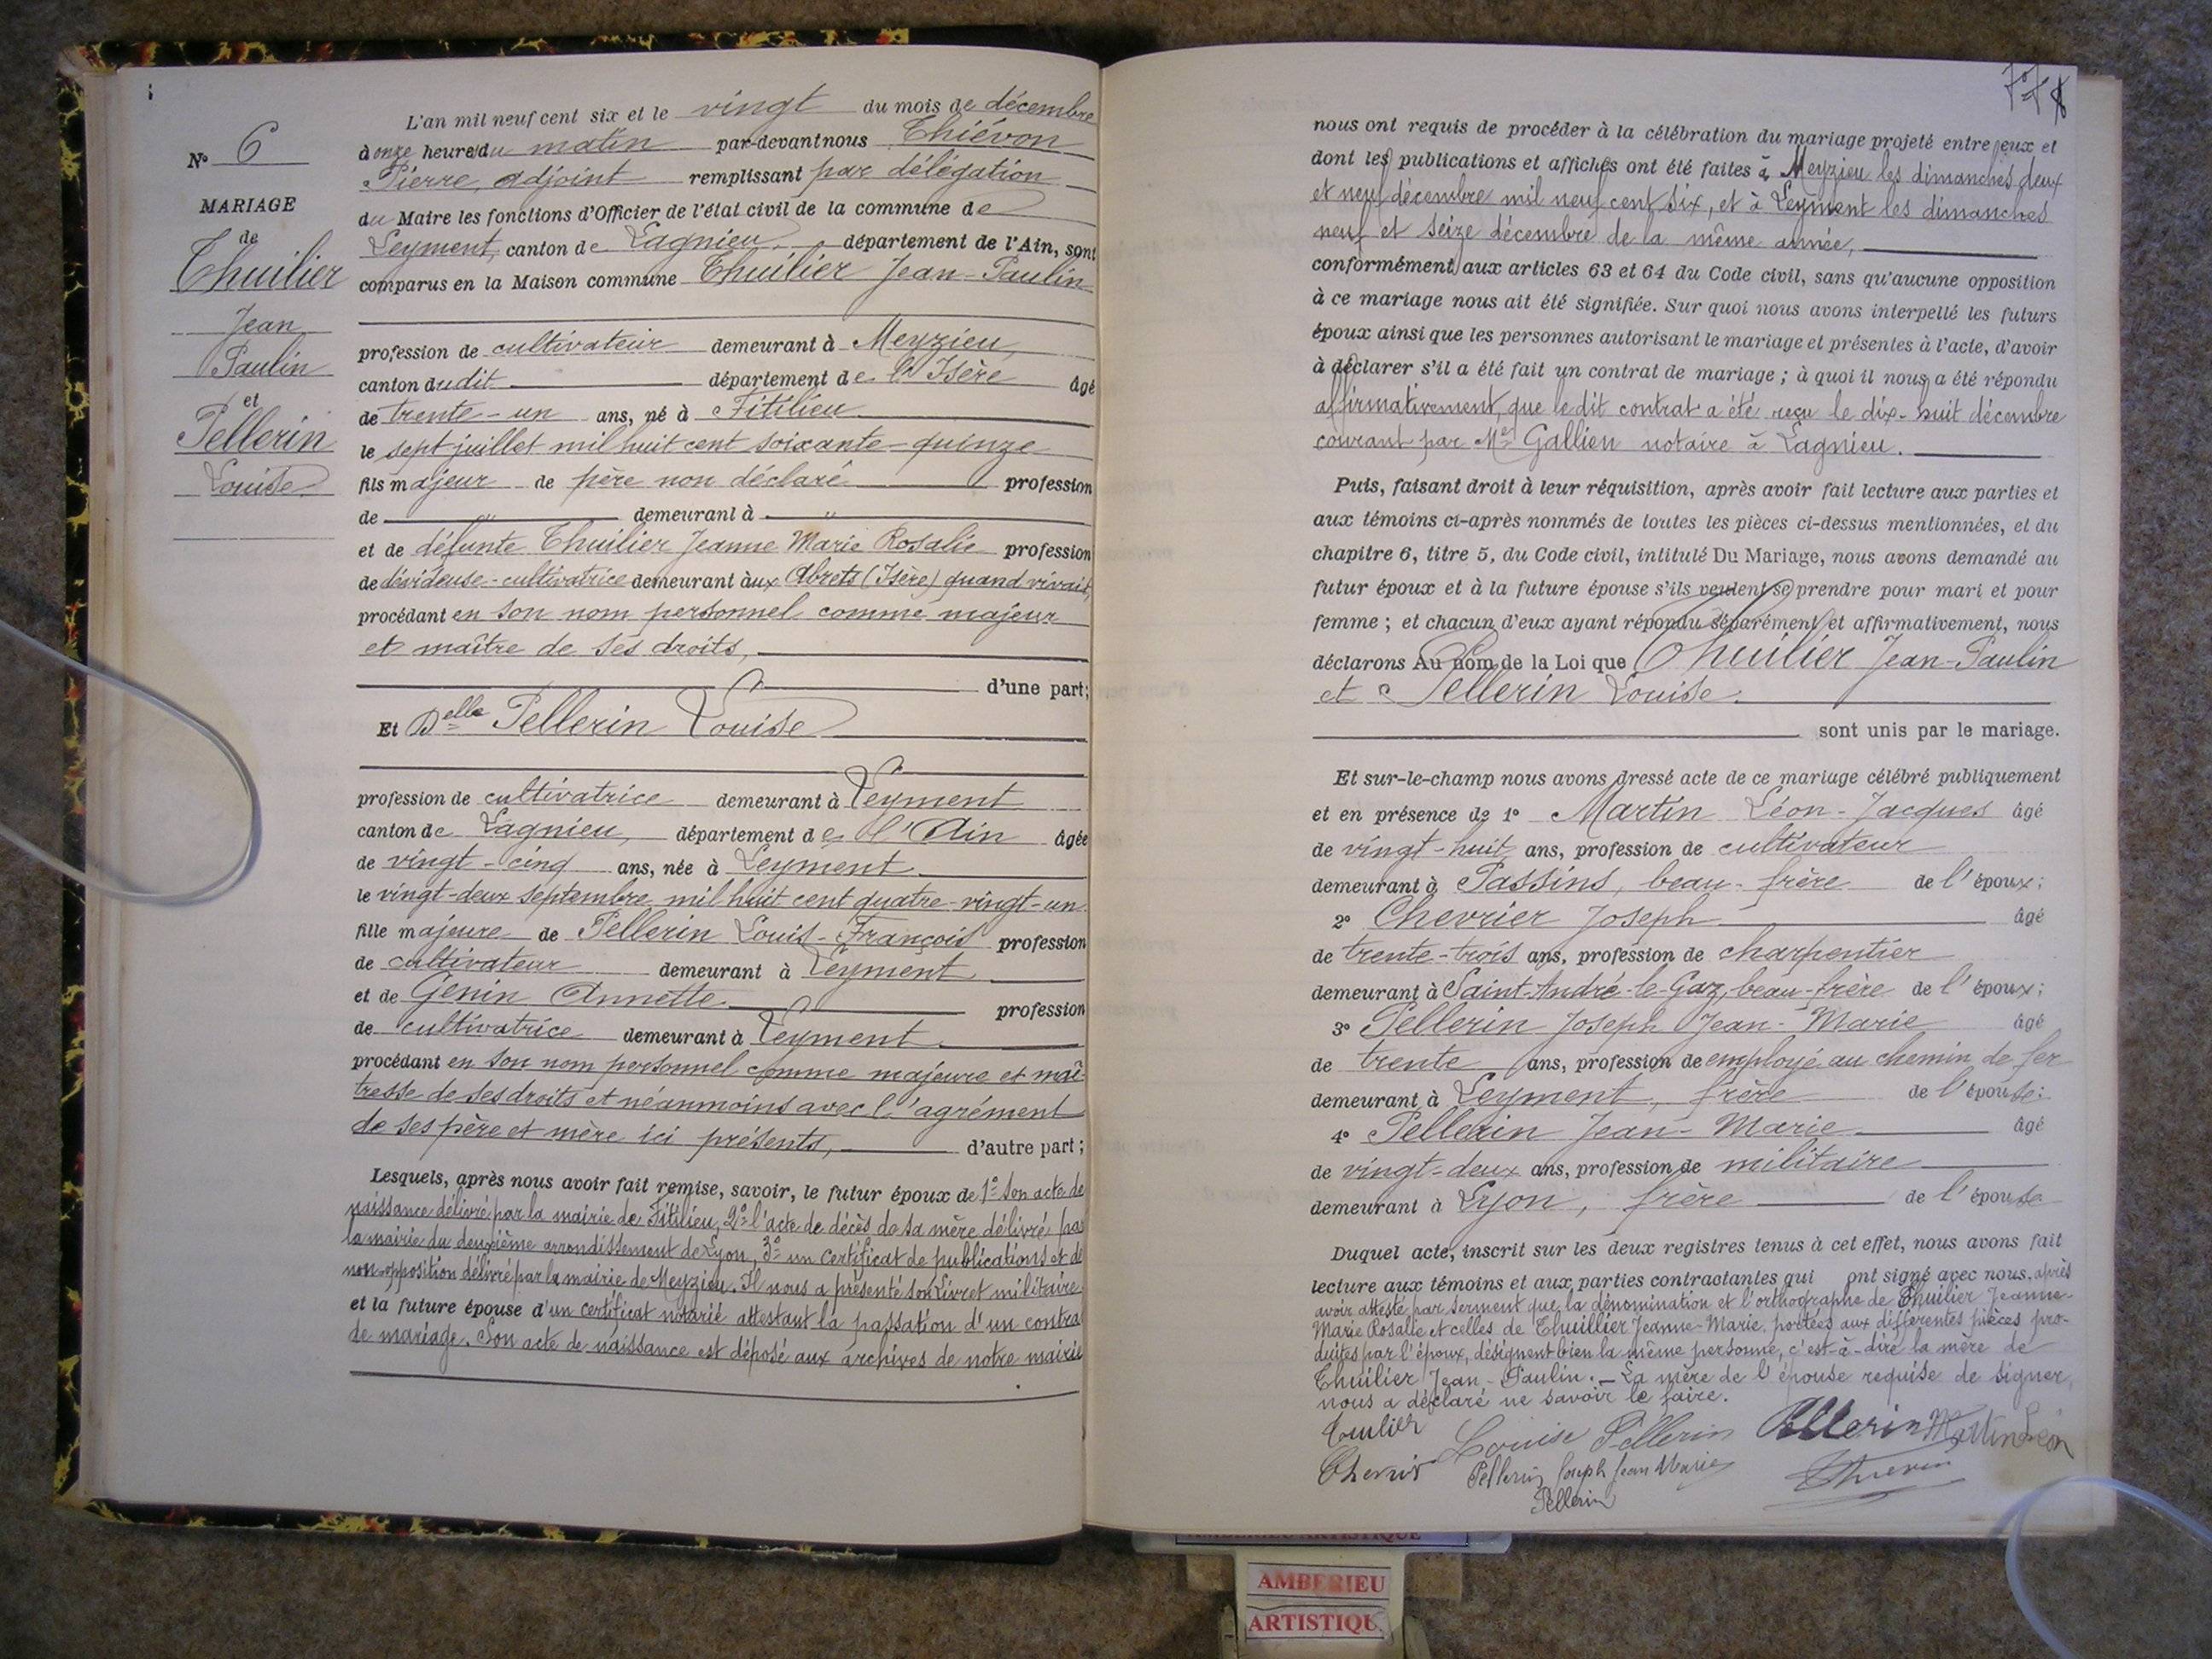 N° 6
MARIAGE
de
Thuilier
Jean
Paulin
et
Pellerin
Louise
L'an mil neuf cent six et le vingt du mois de décembre
à onze heures du matin par-devant nous Thiévon
Pierre, adjoint remplissant par délégation
du Maire les fonctions d'Officier de l'état civil de la commune de
Leyment, canton de Lagnieu, département de l'Ain, sont
comparus en la Maison commune Thuilier Jean-Paulin
profession de cultivateur demeurant à Meyzieu,
canton dudit département de l'Isère âgé
de trente-un ans, né à Fitilieu
le sept juillet mil huit cent soixante-quinze
fils majeur de père non déclaré profession
de " demeurant à "
et de défunte Thuilier Jeanne Marie Rosalie profession
de dévideuse-cultivatrice demeurant aux Abrets (Isère) quand vivait,
procédant en son nom personnel comme majeur
et maître de ses droits,
d'une part;
Et Delle Pellerin Louise
profession de cultivatrice demeurant à Leyment
canton de Lagnieu, département de l'Ain âgée
de vingt-cinq ans, née à Leyment
le vingt-deux septembre mil huit cent quatre-vingt-un
fille majeure de Pellerin Louis-François profession
de cultivateur demeurant à Leyment
et de Genin Annette profession
de cultivatrice demeurant à Leyment
procédant en son nom personnel comme majeure et maî-
tresse de ses droits et néanmoins avec l'agrément
de ses père et mère ici présents, d'autre part;
Lesquels, après nous avoir fait remise, savoir, le futur époux de 1° son acte de
naissance délivré par la mairie de Fitilieu, 2° l'acte de décès de sa mère délivré pa
la mairie du deuxième arrondissement de Lyon, 3° un certificat de publications et de
non-opposition délivré par la mairie de Meyzieu. Il nous a présenté son Livret militaire
et la future épouse d'un certificat notarié attestant la passation d'un contra
de mariage. Son acte de naissance est déposé aux archives de notre mairie
nous ont requis de procéder à la célébration du mariage projeté entre eux et
dont les publications et affiches ont été faites à Meyzieu les dimanches deux
et neuf décembre mil neuf cent six, et à Leyment les dimanches
neuf et seize décembre de la même année,
conformément aux articles 63 et 64 du Code civil, sans qu'aucune opposition
à ce mariage nous ait été signifiée. Sur quoi nous avons interpellé les futurs
époux ainsi que les personnes autorisant le mariage et présentes à l'acte, d'avoir
à déclarer s'il a été fait un contrat de mariage; à quoi il nous a été répondu
affirmativement, que le dit contrat a été reçu le dix-huit décembre
courant par Me Gallien notaire à Lagnieu.
Puis, faisant droit à leur réquisition, après avoir fait lecture aux parties et
aux témoins ci-après nommés de toutes les pièces ci-dessus mentionnées, et du
chapitre 6, titre 5, du Code civil, intitulé Du Mariage, nous avons demandé au
futur époux et à la future épouse s'ils veulent se prendre pour mari et pour
femme; et chacun d'eux ayant répondu séparément et affirmativement, nous
déclarons Au nom de la Loi que Thuilier Jean-Paulin
et Pellerin Louise.
sont unis par le mariage.
Et sur-le-champ nous avons dressé acte de ce mariage célébré publiquement
et en présence de 1° Martin Léon-Jacques âgé
de vingt-huit ans, profession de cultivateur
demeurant à Passins, beau-frère de l'époux;
2° Chevrier Joseph âgé
de trente-trois ans, profession de charpentier
demeurant à Saint-André-le-Gaz, beau-frère de l'époux;
3° Pellerin Joseph Jean-Marie âgé
de trente ans, profession de employé au chemin de fer
demeurant à Leyment, frère de l'épouse;
4° Pellerin Jean-Marie âgé
de vingt-deux ans, profession de militaire
demeurant à Lyon, frère de l'épouse
Duquel acte, inscrit sur les deux registres tenus à cet effet, nous avons fait
lecture aux témoins et aux parties contractantes qui ont signé avec nous, après
avoir attesté par serment que la dénomination et l'orthographe de Thuilier Jeanne-
Marie Rosalie et celles de Thuillier Jeanne-Marie, portées aux différentes pièces pro-
duites par l'époux, désignent bien la même personne, c'est-à-dire la mère de
Thuilier Jean-Paulin. — La mère de l'épouse requise de signer,
nous a déclaré ne savoir le faire.
Louise Pellerin Pellerin Martin Léon
Pellerin Joseph Jean Marie Thievon
Pellerin
AMBERIEU ARTISTIQUE
AMBERIEU
ARTISTIQUE